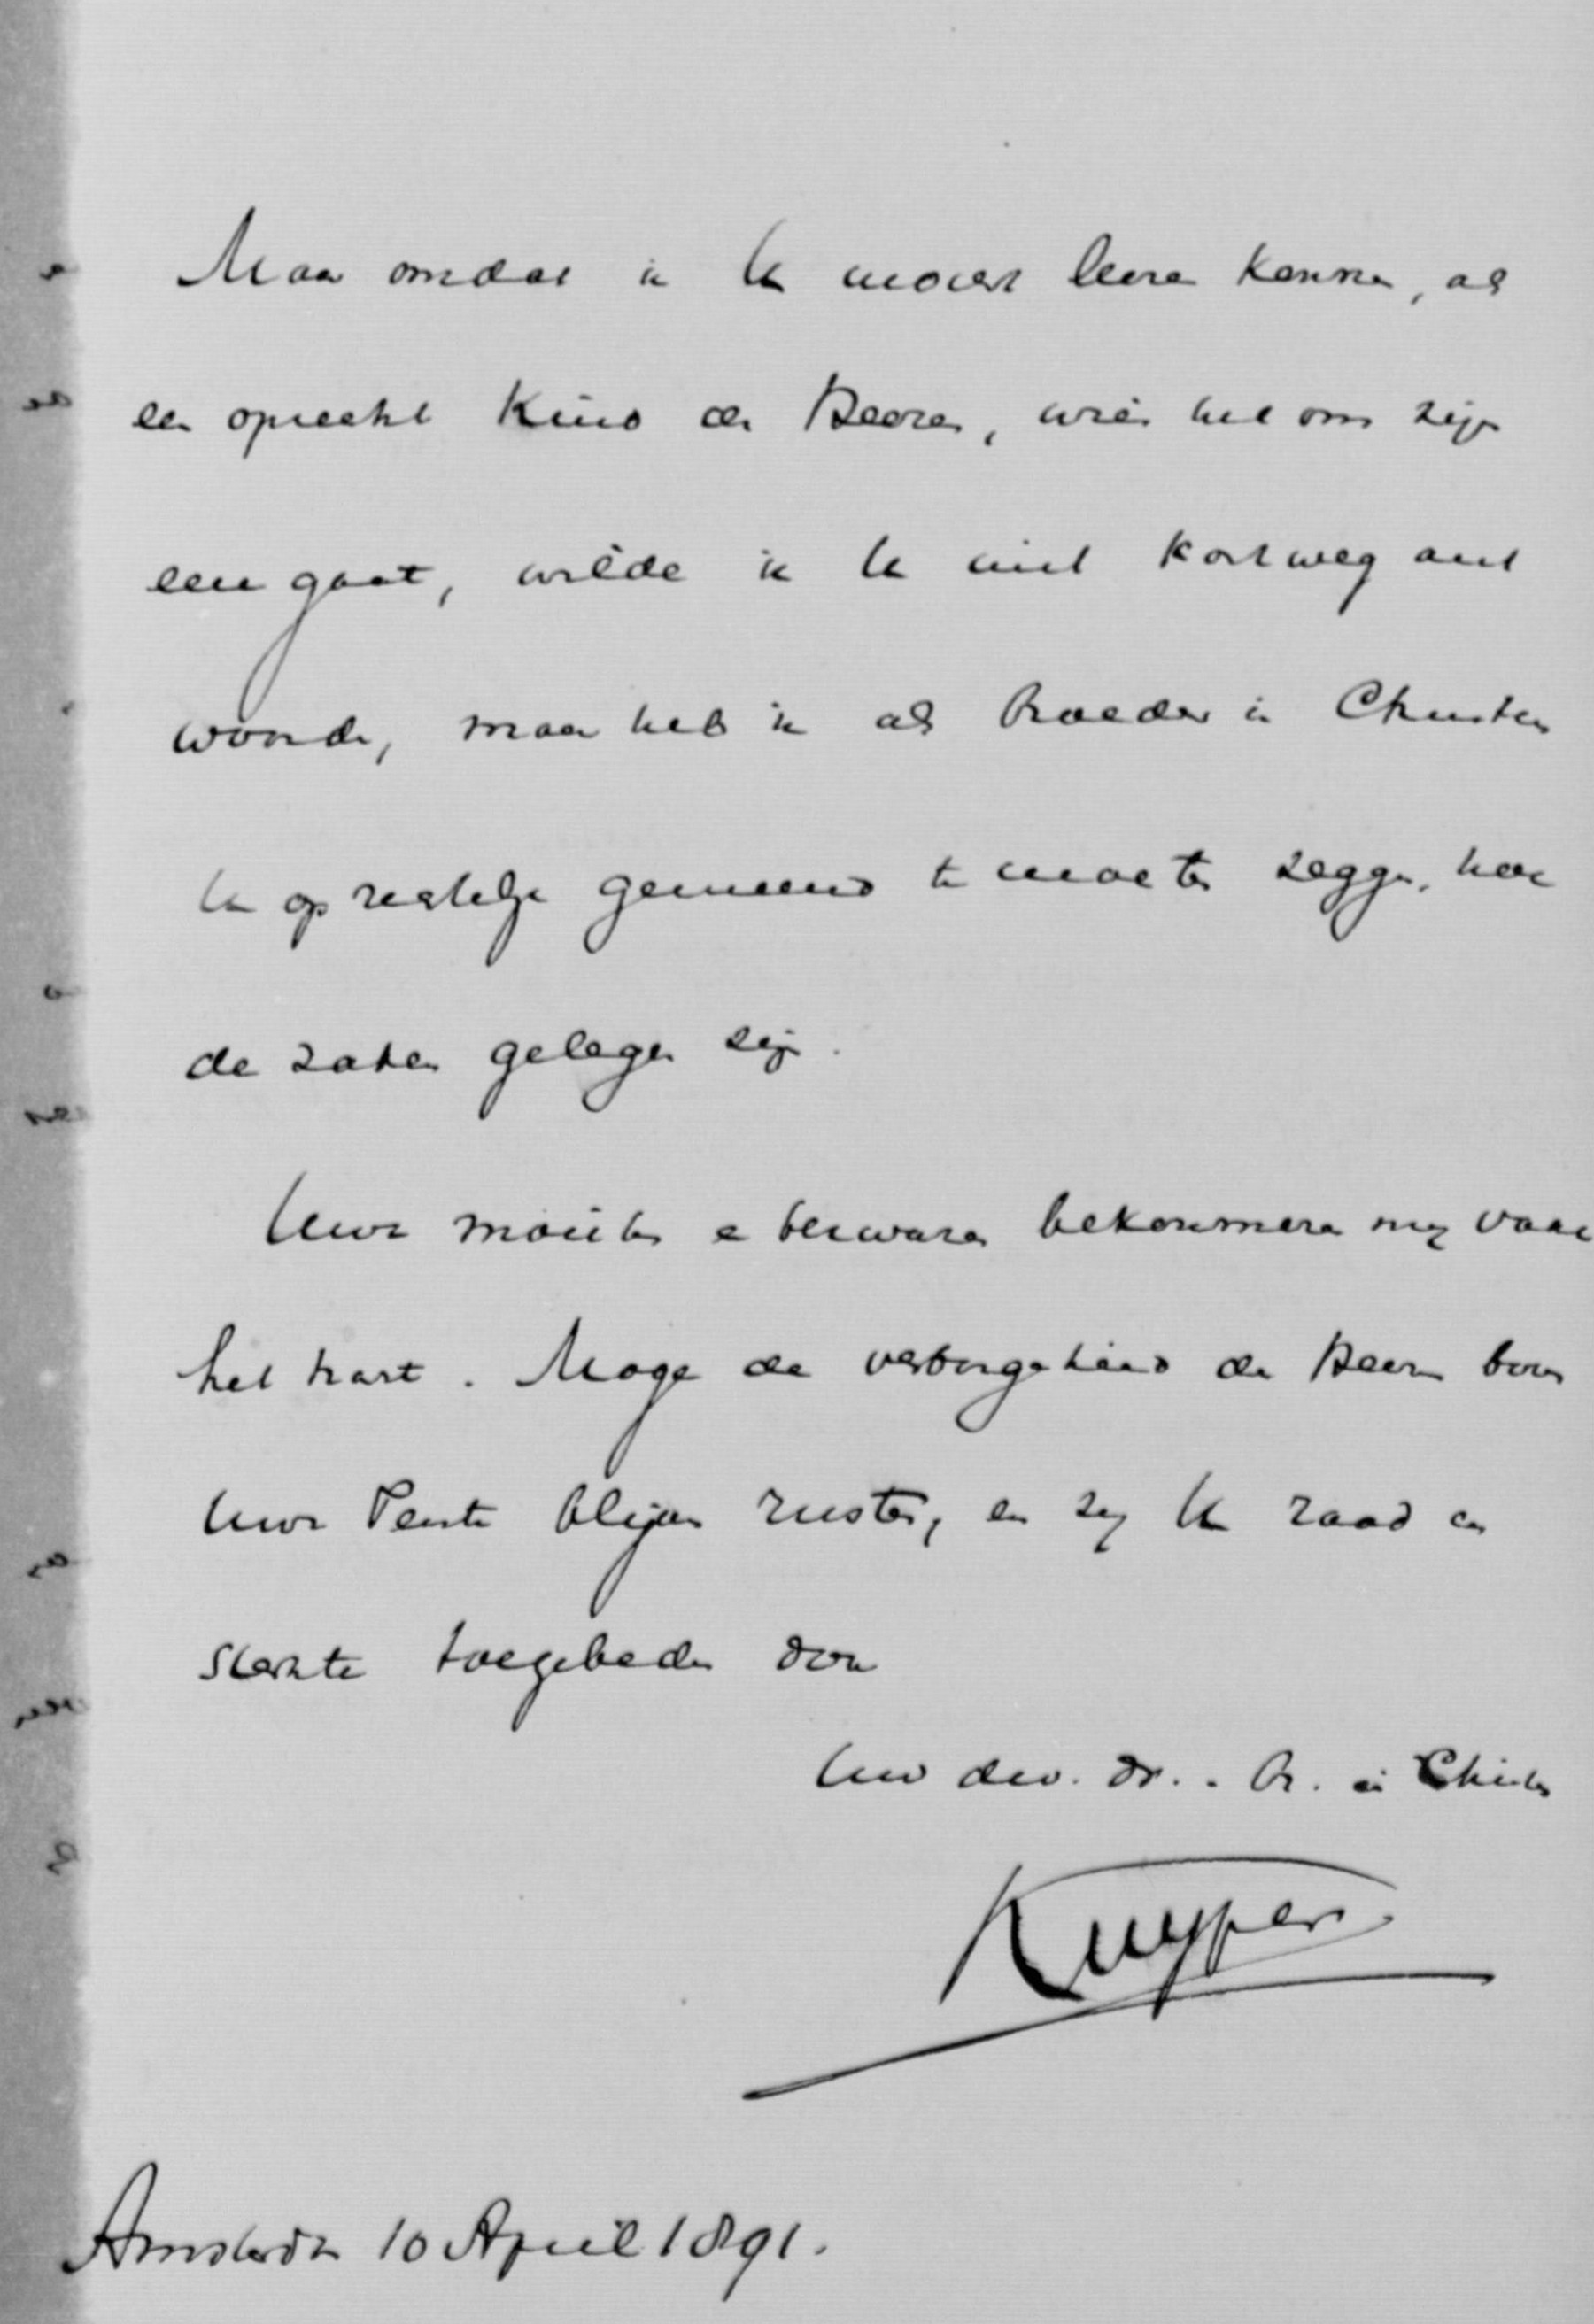 Maar omdat ik U mocht leeren kennen, als
een oprecht kind des Heeren, wien het om zijn
eere gaat, wilde ik U niet kortweg ant
woorden, maar heb ik als broeder in Christus
U oprechtelijk gemeend te moeten zeggen, hoe
de zaken gelegen zijn.
Uwe moeiten en bezwaren bekommeren mij
het hart. Moge de verborgenheid des Heeren over
Uwe Tente blijven rusten, en zij U raad en
sterkte toegebeden door
Uw dw. dr. . Br. in Christus
Kuyper
Amsterdam 10 April 1891.